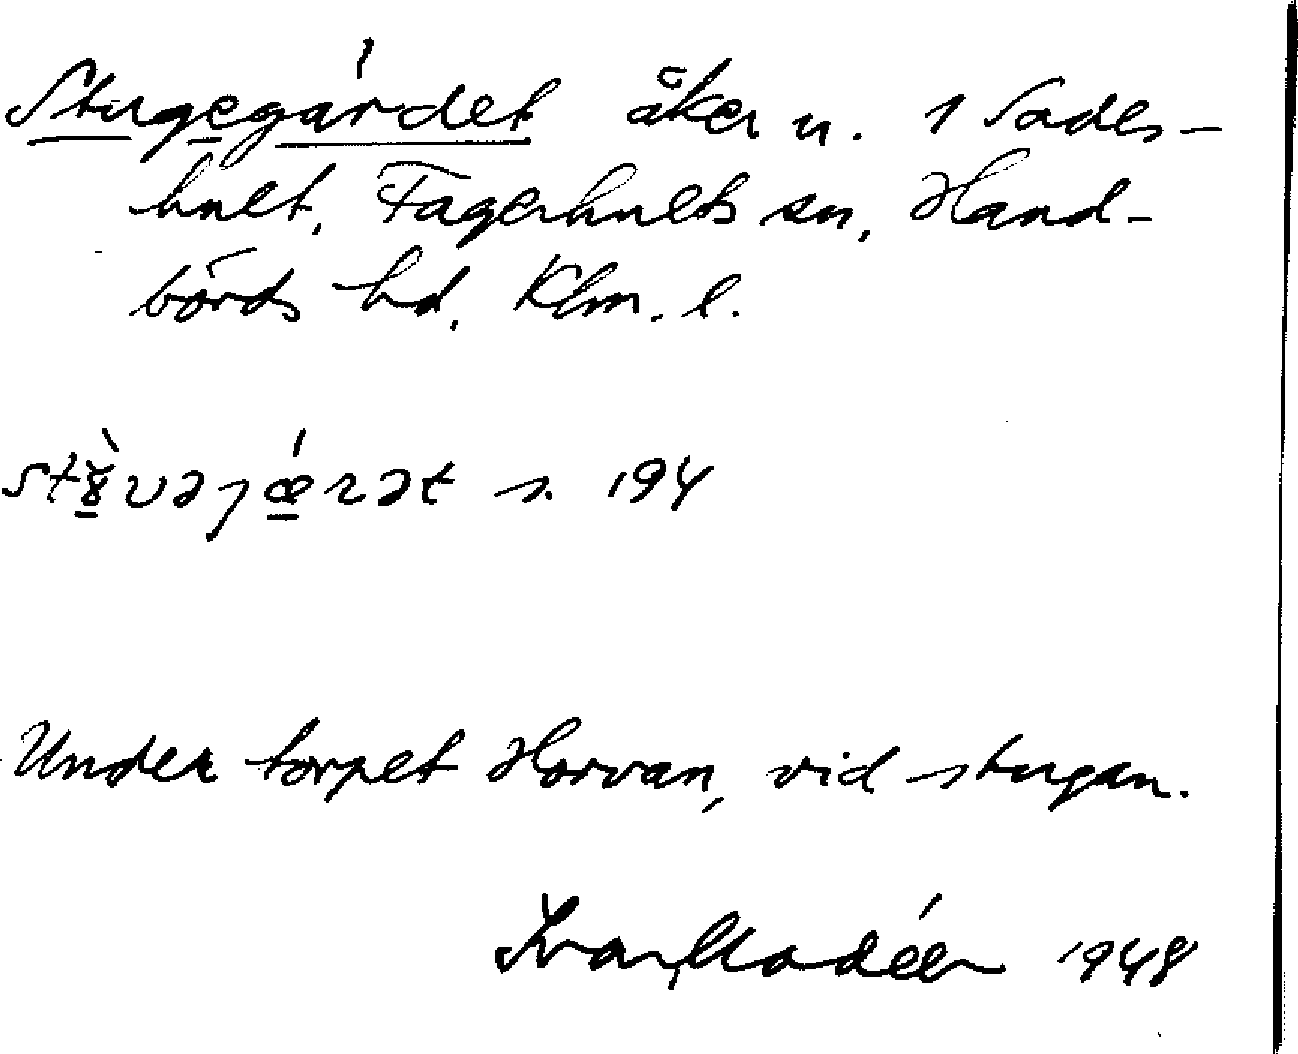 Stugegärdet åker u. 1 Sades-
hult, Fagerhults sn, Hand-
börds hd, Klm. l.
s. 194
Under torpet Horvan, vid stugan.
Ivar Modéer 1948